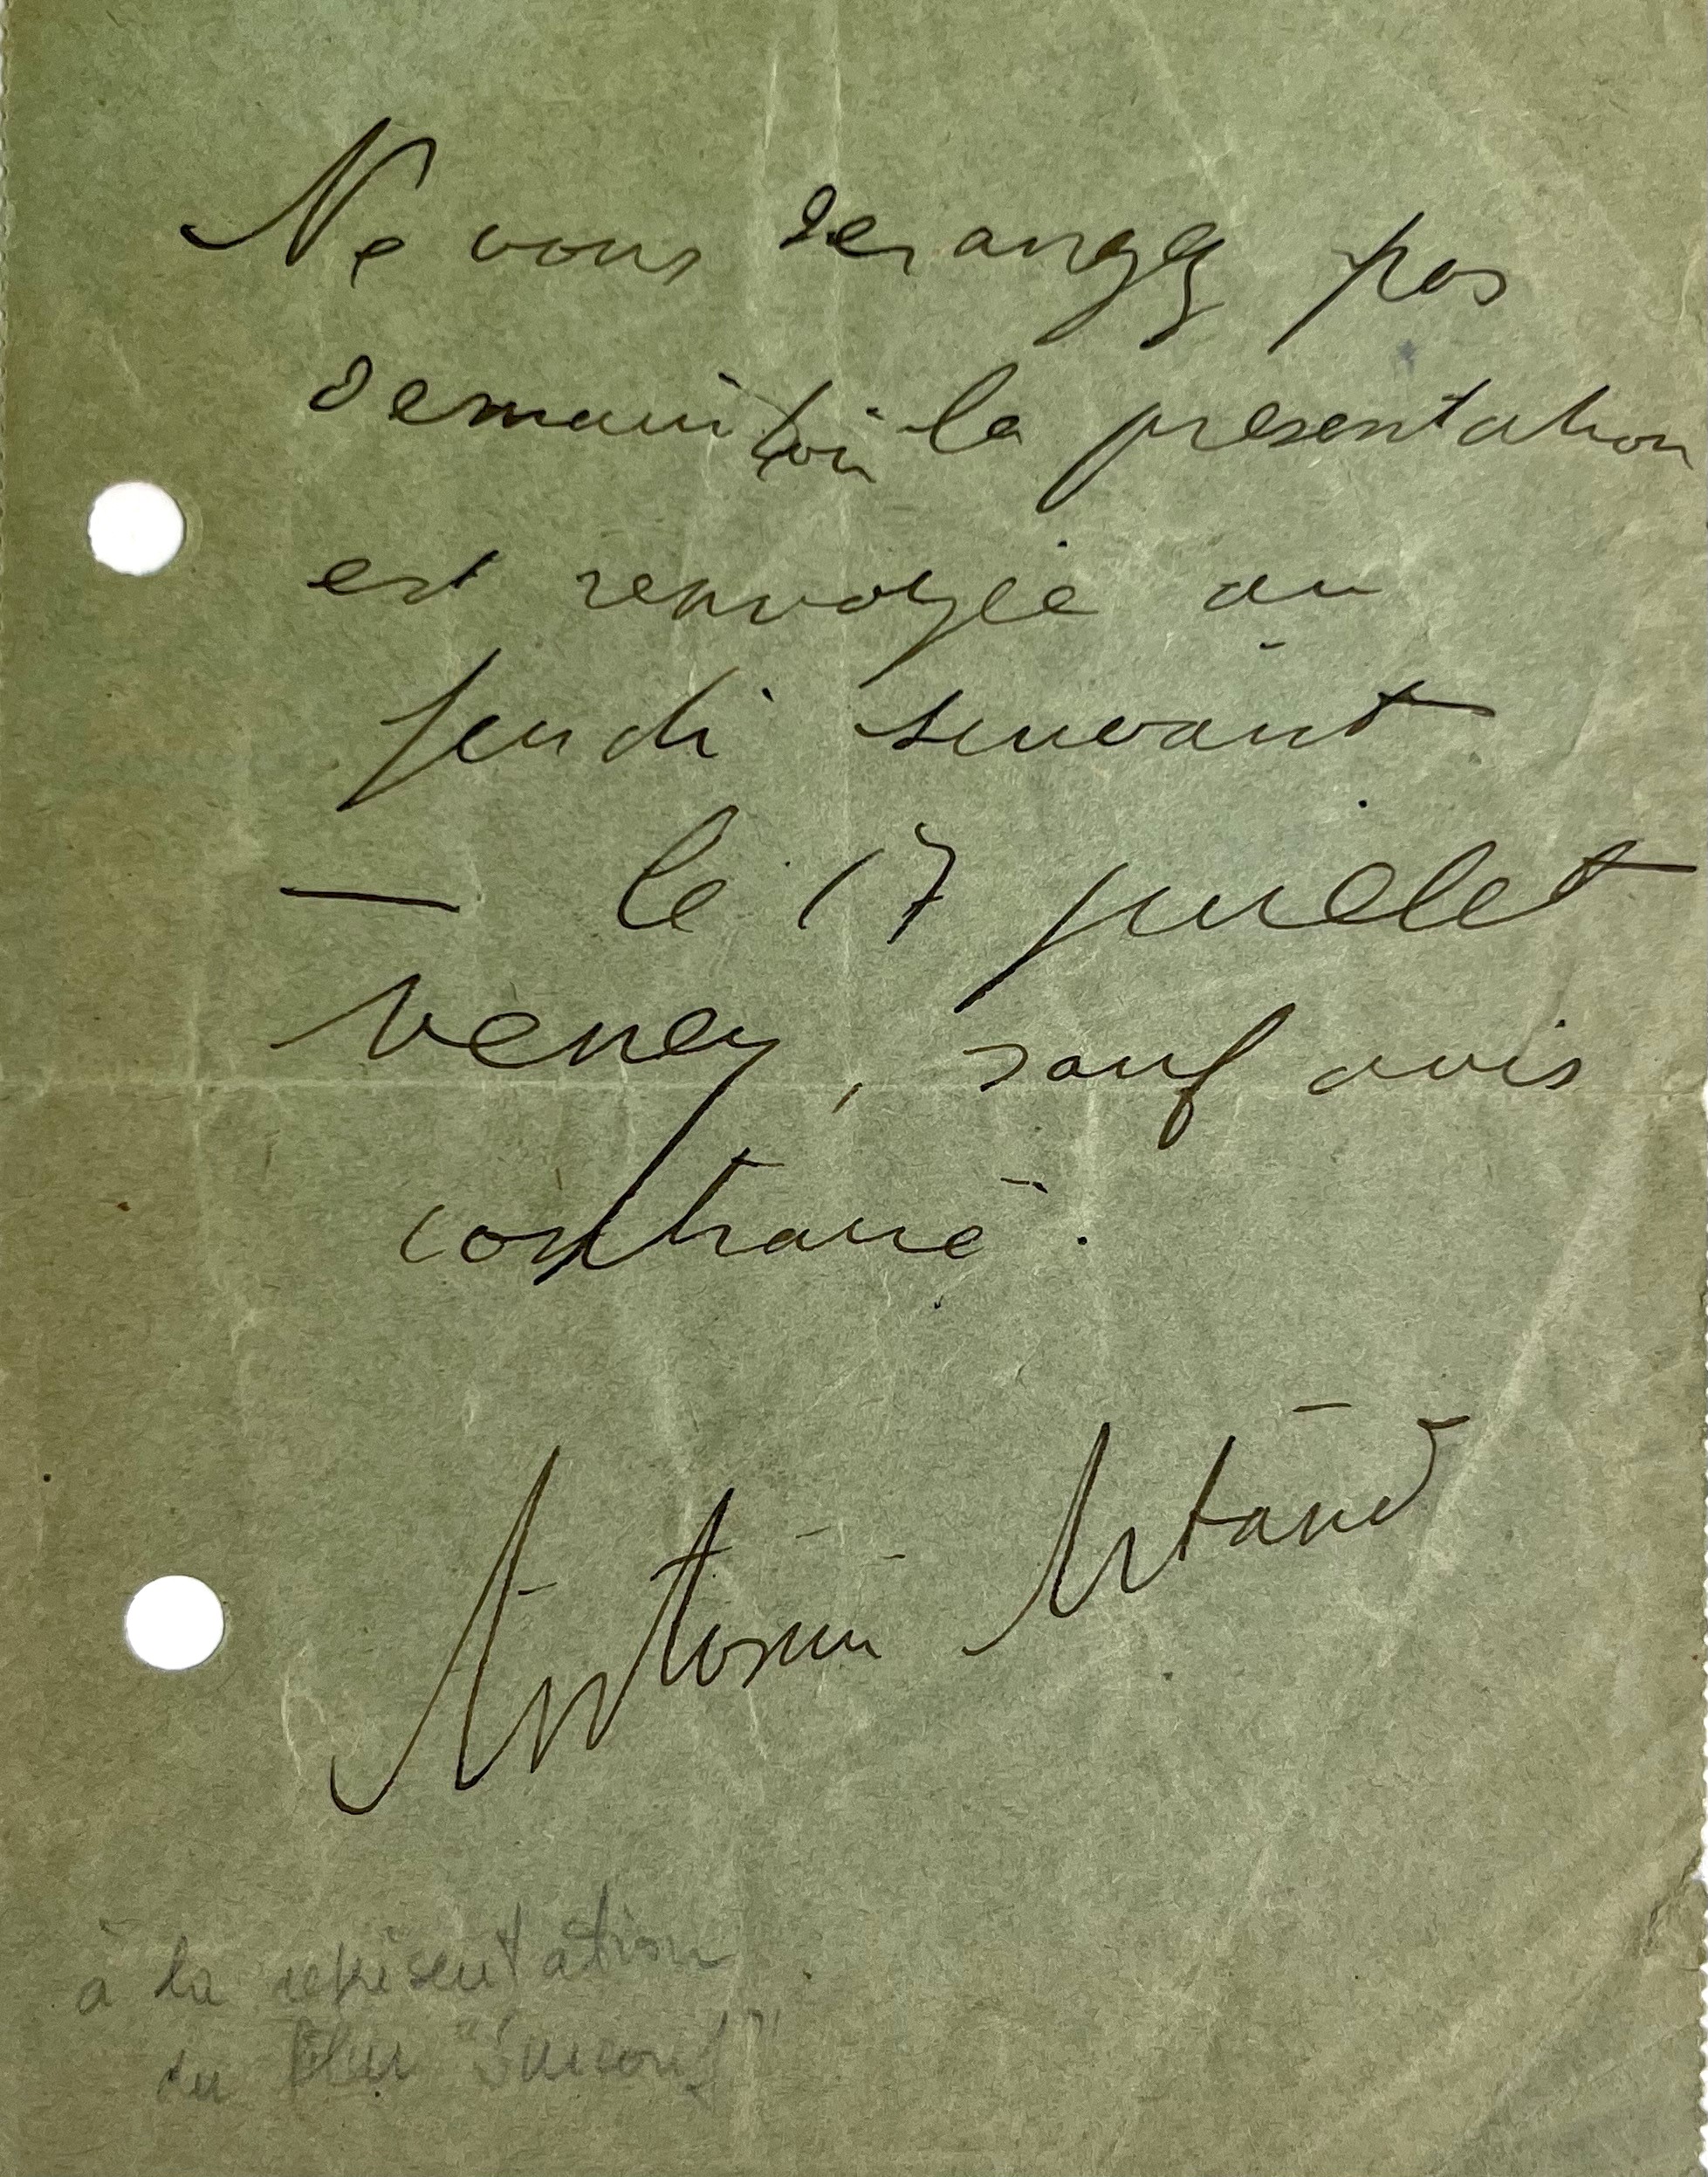 Ne vous derangez pas
demain la presentation
est renvoyée au
jeudi suivant
— le 17 juillet
venez, sauf avis
contraire.
Antonin Artaud
à la représentation
du film "Surcouf"